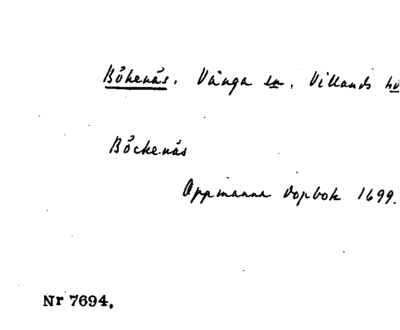 Bökenäs. Vånga sn. Villands hd
Böckenäs
Oppmanna dopbok 1699.
Nr 7694.